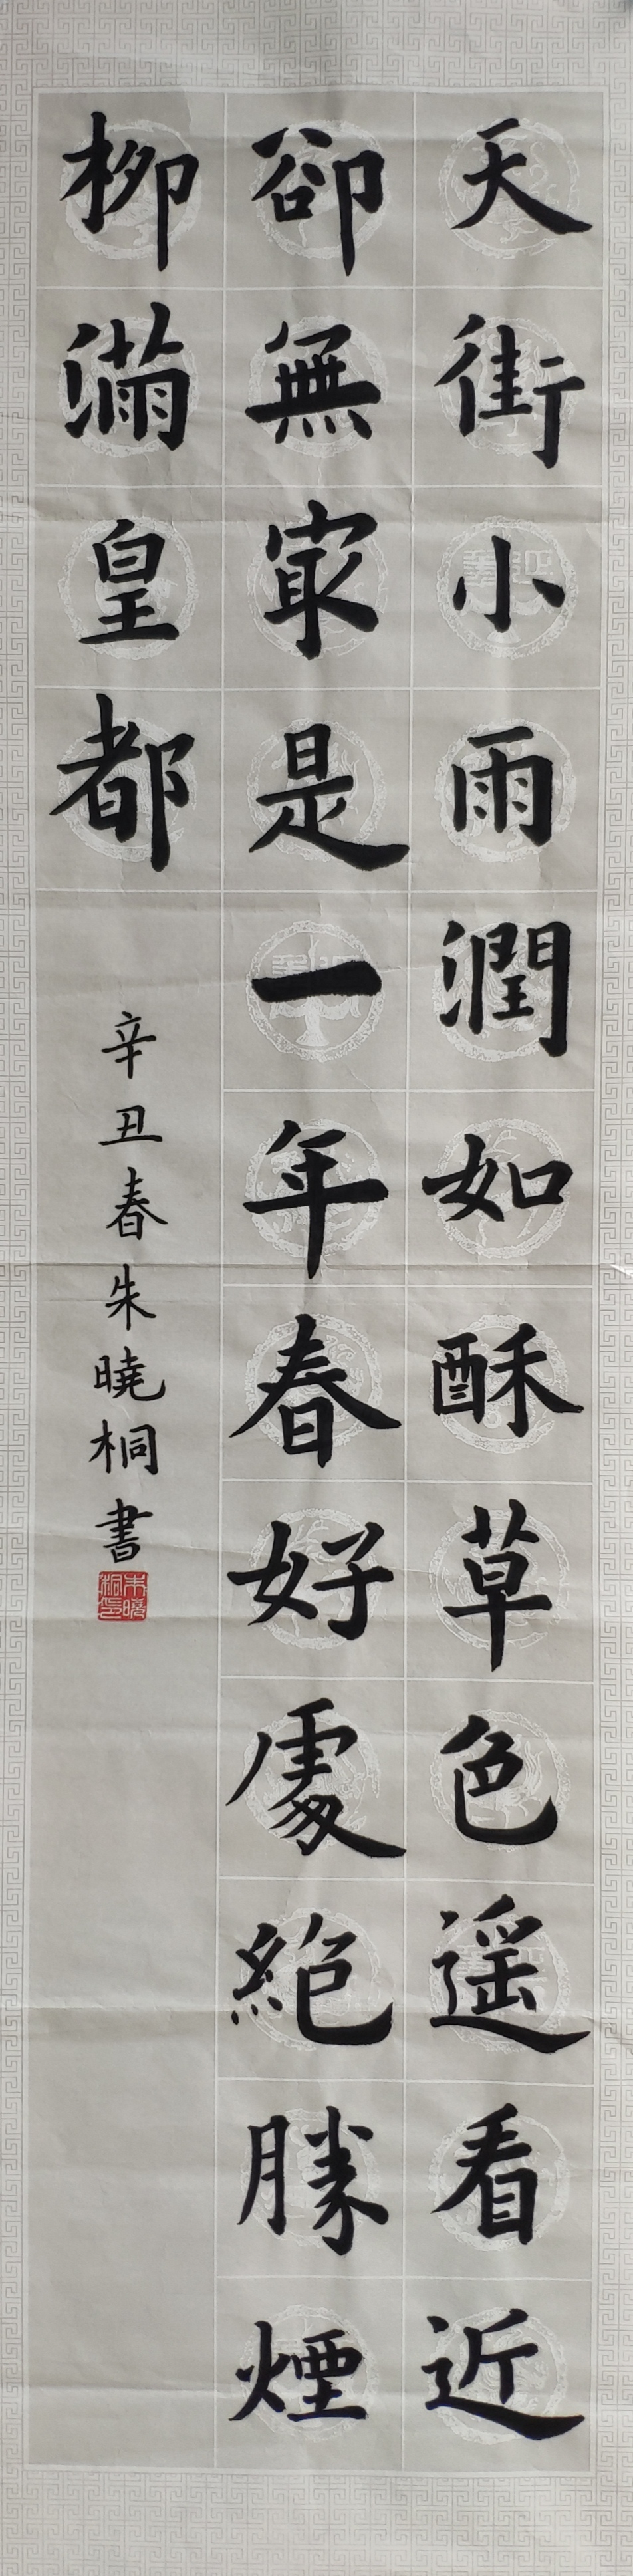 天街小雨潤如酥草色遥看近
卻無冣是一年春好處絕勝煙
柳滿皇都
辛丑春朱曉桐書
朱曉桐印